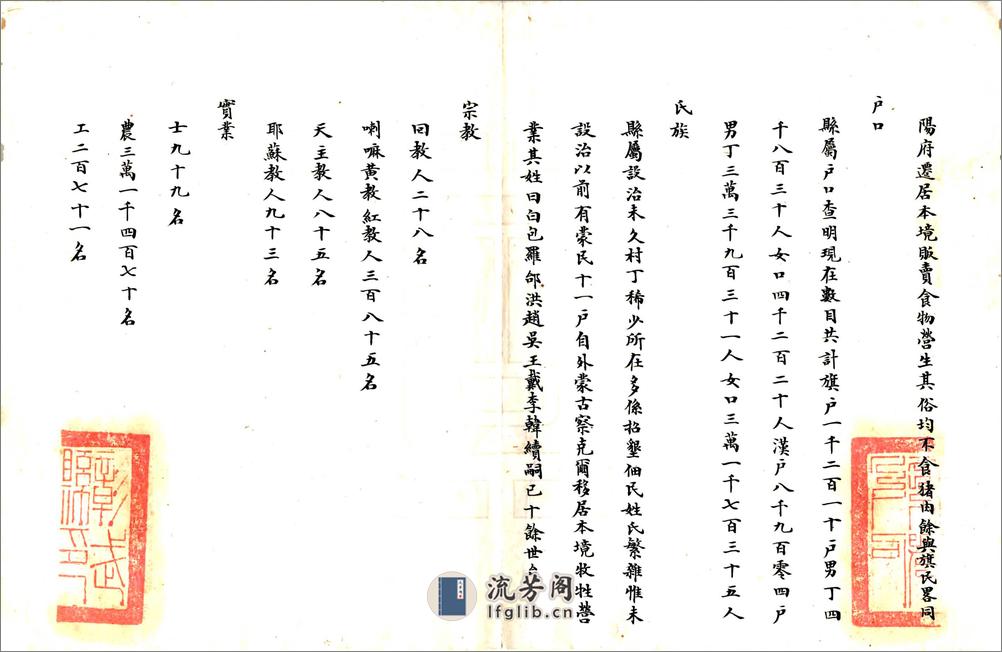 陽府遷居本境販賣食物營生其俗均不食猪肉餘與旗民畧同
户口
縣屬户口查明現在數目共計旗户一千二百一十户男丁四
千八百三十人女口四千二百二十人漢户八千九百零四户
男丁三萬三千九百三十一人女口三萬一千七百三十五人
氏族
縣屬設治未久村丁稀少所在多係招墾佃民姓氏繁雜惟未
設治以前有蒙民十一户自外蒙古察克爾移居本境牧牲營
業其姓曰白包羅邰洪趙吳王戴李韓續嗣已十餘世
宗教
回教人二十八名
喇嘛黃教紅教人三百八十五名
天主教人八十五名
耶蘇教人九十三名
實業
士九十九名
農三萬一千四百七十名
工二百七十一名
流芳阁
lfglib.cn